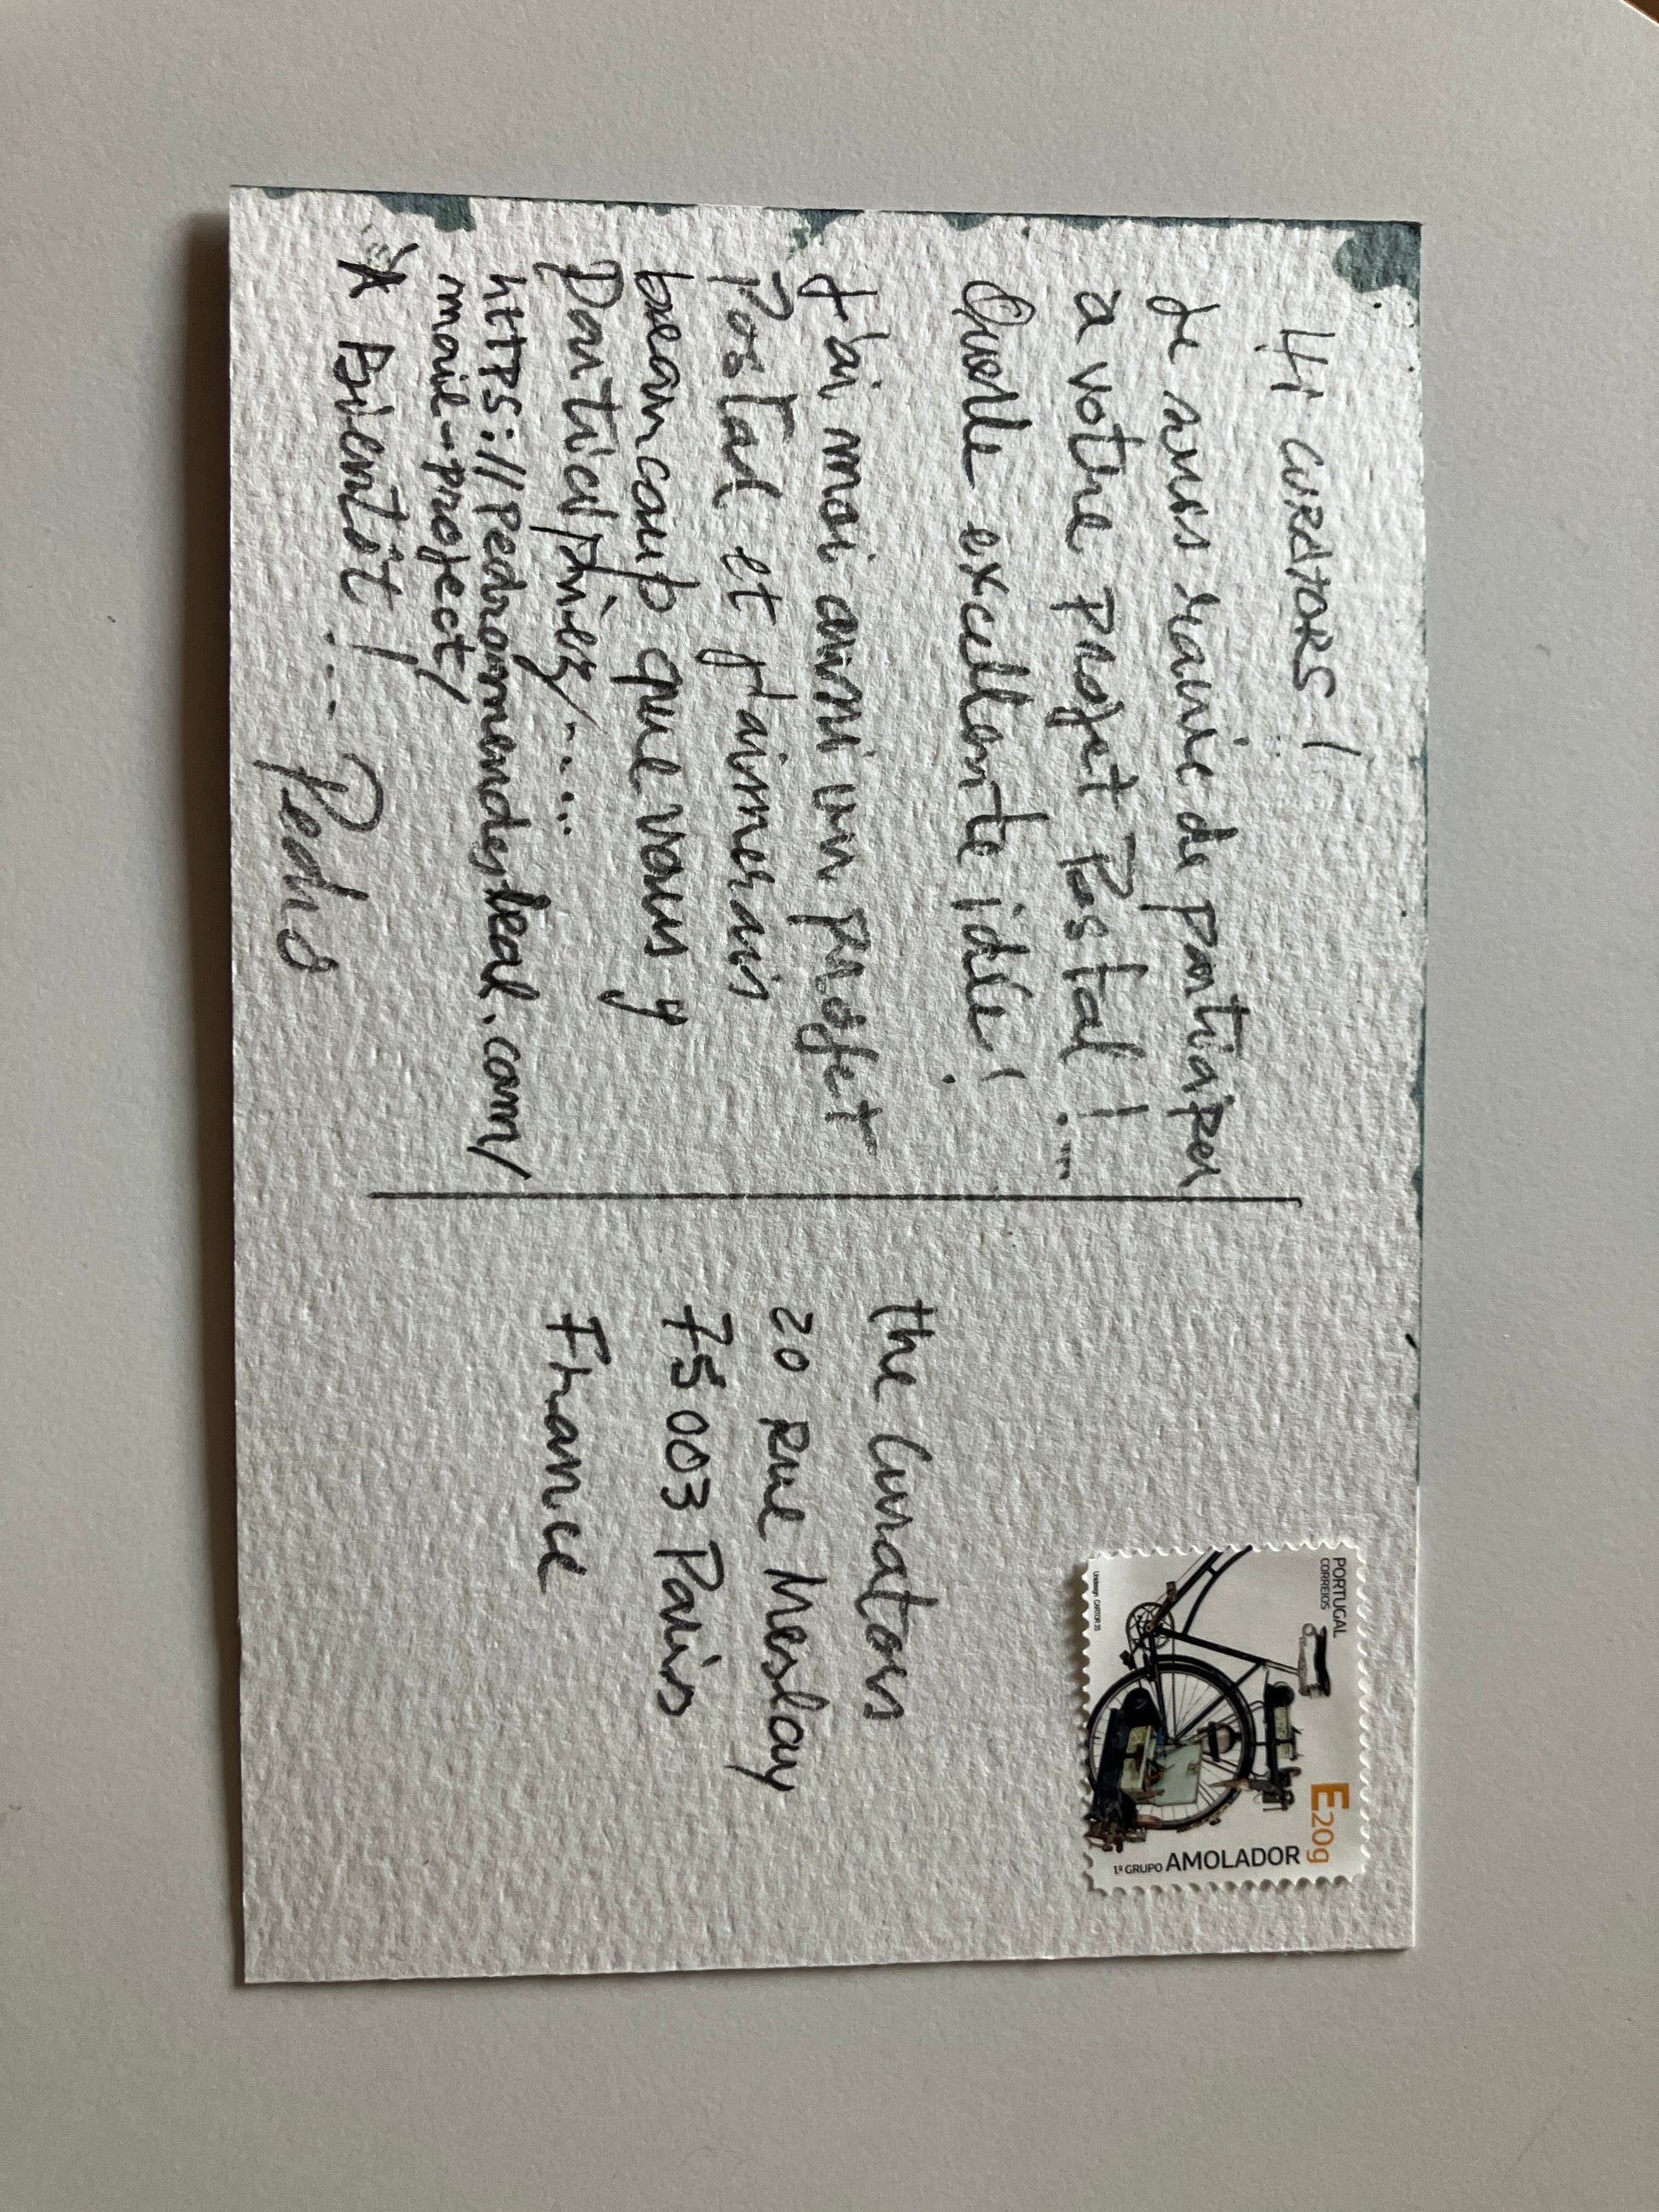 Hi CURATORS!
Je suis ravie de participer
a votre projet Postal!...
Quelle excellente idée!
J'ai moi aussi un project
Postal et j'aimerais
beaucoup que vous y
participiez/.....
https://pedromendesleal.com/
mail-project/
A Bientôt!... Pedro
the Curators
20 Rue Meslay
75003 Paris
France
PORTUGAL
CORREIOS
E20g
1.º GRUPO AMOLADOR